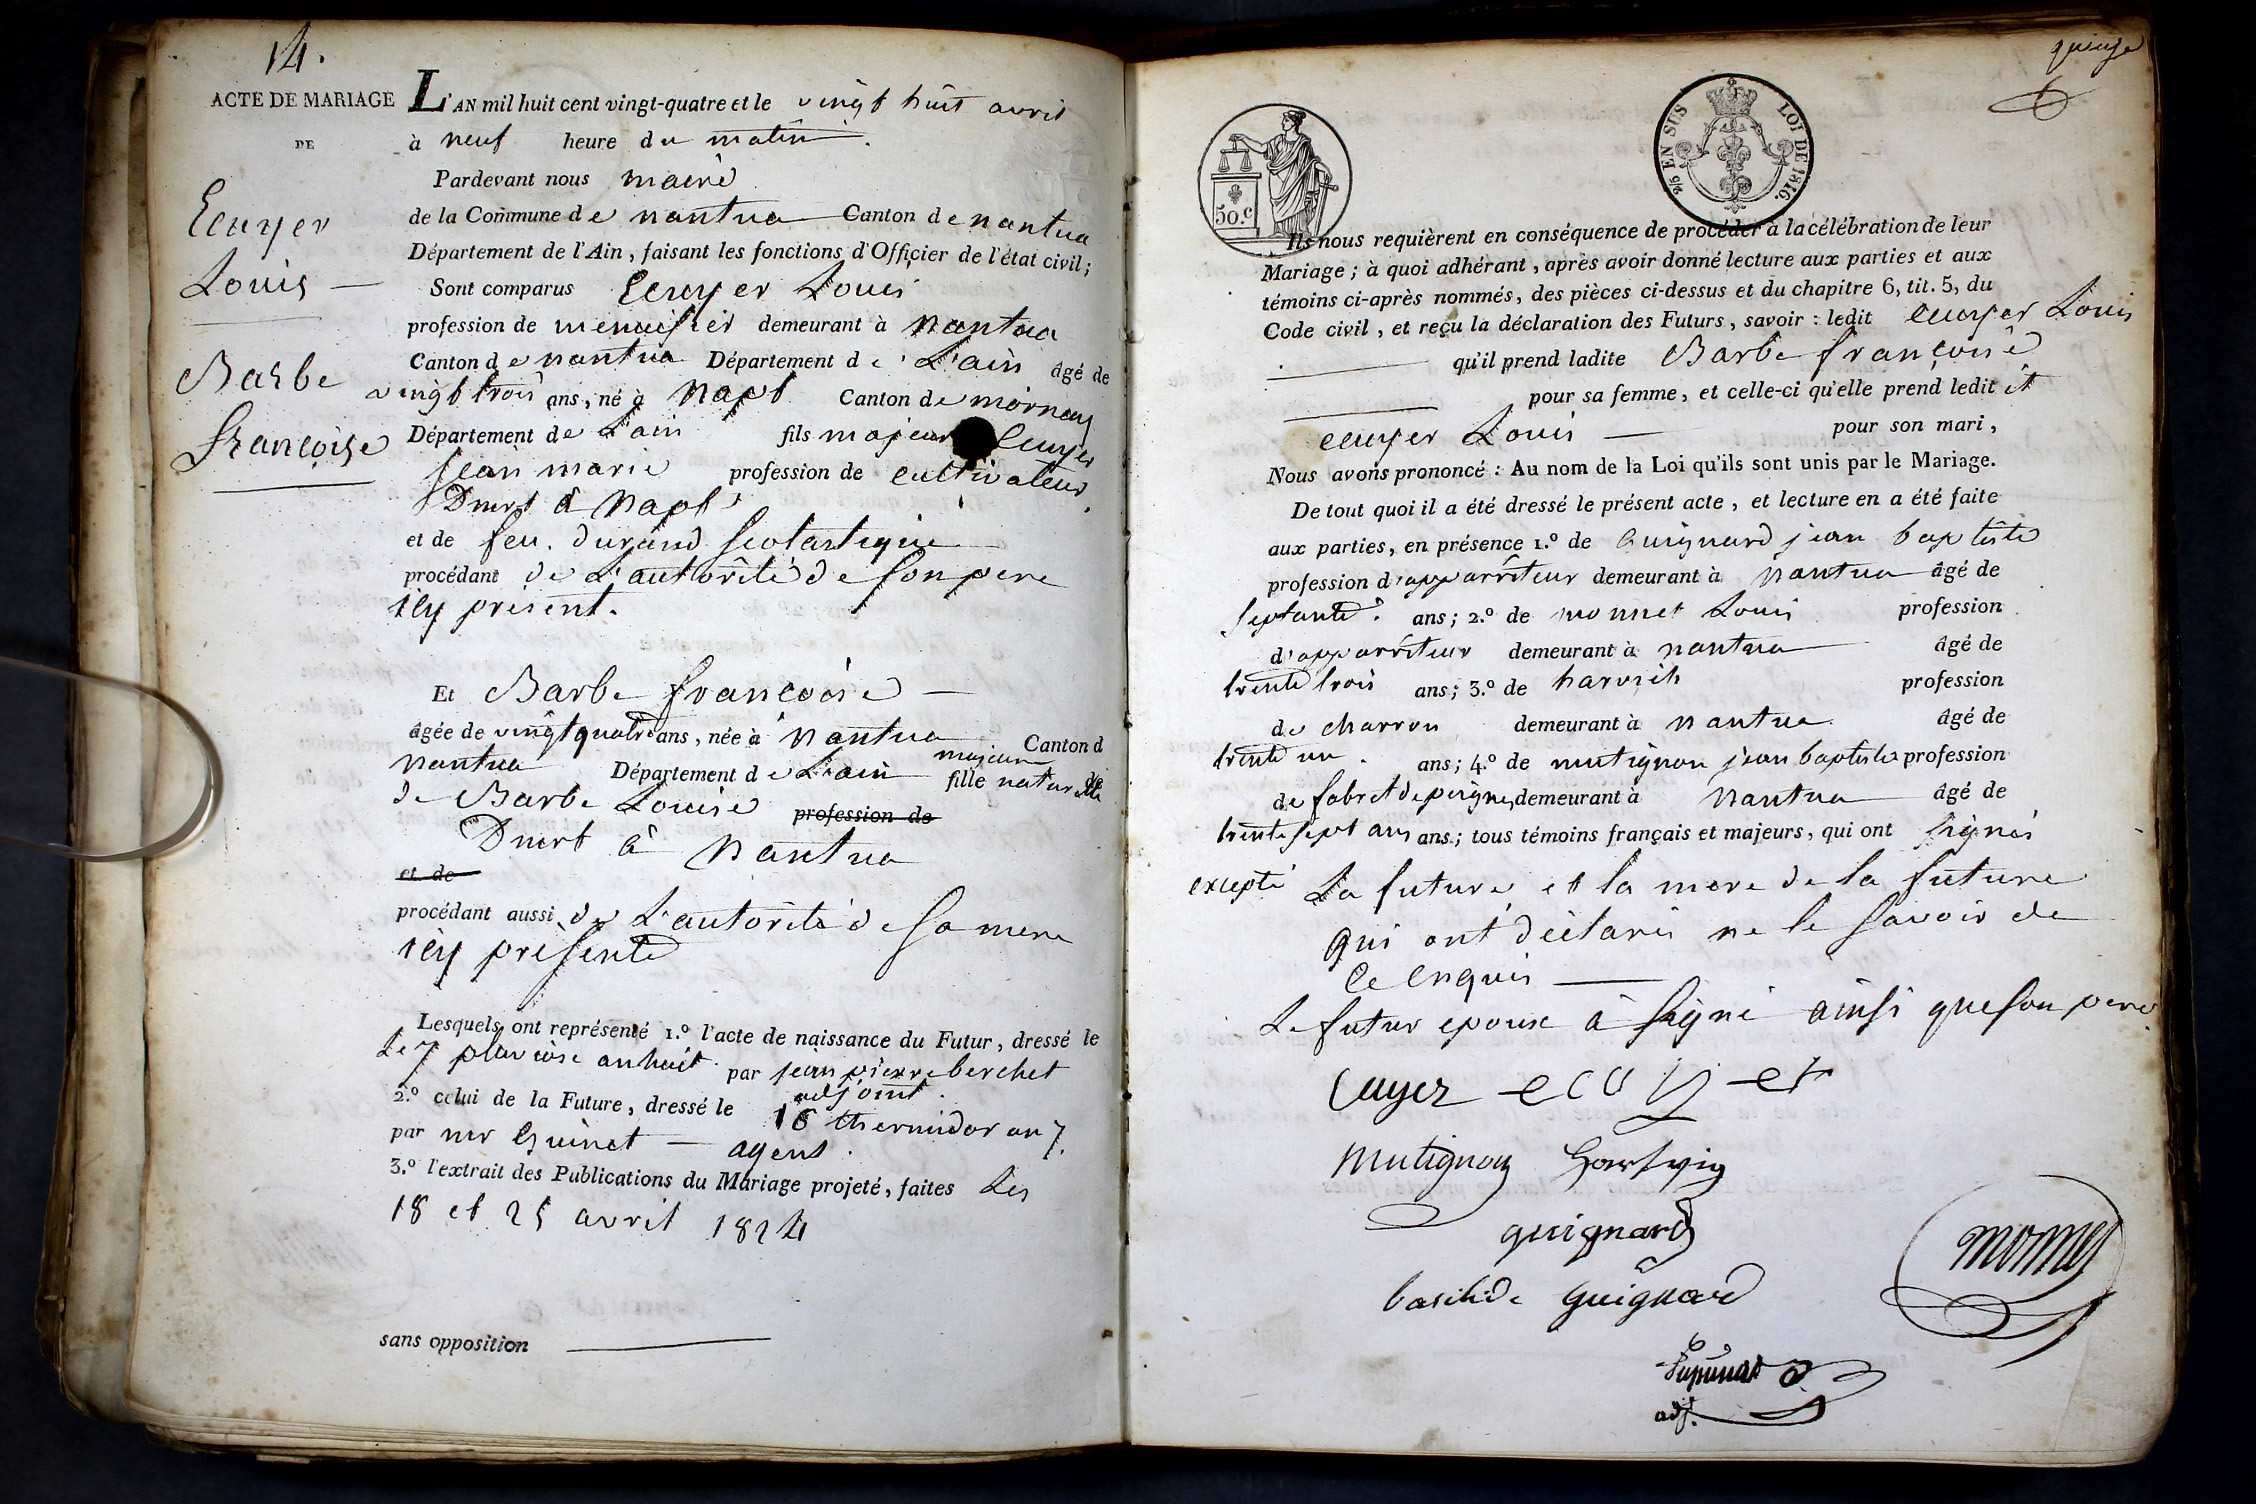 14.
ACTE DE MARIAGE
DE
Ecuyer
Louis
Barbe
Françoise
L'AN mil huit cent vingt-quatre et le vingt huit avril
à neuf heure du matin.
Pardevant nous maire
de la Commune de nantua Canton de nantua
Département de l'Ain, faisant les fonctions d'Officier de l'état civil;
Sont comparus Ecuyer Louis
profession de menuisier demeurant à Nantua
Canton de nantua Département de L'ain âgé de
vingt trois ans, né à Napt Canton de mornay
Département de L'ain fils majeur Ecuyer
jean marie profession de cultivateur
Dmrt à Napt
et de feu. durand scolastique
procédant de L'autorité de son pere
icy present.
Et Barbe francoise
âgée de vingt quatre ans, née à Nantua Canton d
nantua Département de L'ain majeure fille naturelle
de Barbe Louise profession de
Dmrt à Nantua
et de
procédant aussi de L'autorité de sa mere
icy présente
Lesquels ont représenté 1.º l'acte de naissance du Futur, dressé le
Le 7 pluviose an huit par jean pierre berchet
adjoint.
2.º celui de la Future, dressé le 16 thermidor an 7.
par mr Guinet agent.
3.º l'extrait des Publications du Mariage projeté, faites Les
18 et 25 avril 1824
sans opposition
quinze
50.c
2/5 EN SUS LOI DE 1816.
Ils nous requièrent en conséquence de procéder à la célébration de leur
Mariage; à quoi adhérant, après avoir donné lecture aux parties et aux
témoins ci-après nommés, des pièces ci-dessus et du chapitre 6, tit. 5, du
Code civil, et reçu la déclaration des Futurs, savoir: ledit ecuyer Louis
qu'il prend ladite Barbe françoise
pour sa femme, et celle-ci qu'elle prend ledit
ecuyer Louis pour son mari,
Nous avons prononcé: Au nom de la Loi qu'ils sont unis par le Mariage.
De tout quoi il a été dressé le présent acte, et lecture en a été faite
aux parties, en présence 1.º de Guignard jean baptiste
profession d'apparriteur demeurant à Nantua âgé de
septante. ans; 2.º de monnet Louis profession
d'apparriteur demeurant à nantua âgé de
trente trois ans; 3.º de profession
de charron demeurant à nantua âgé de
trente un. ans; 4.º de mutignon jean baptiste profession
de fabrt de peignes demeurant à Nantua âgé de
trente sept ans ans; tous témoins français et majeurs, qui ont signés
excepté La future et la mere de la future
qui ont déclarés ne le savoir de
ce enquis
Le futur epoux à signé ainsi que son pere.
cuyer ecuyer
Mutignon Hartvig
guignard
basilide guignard
monnet
adj.